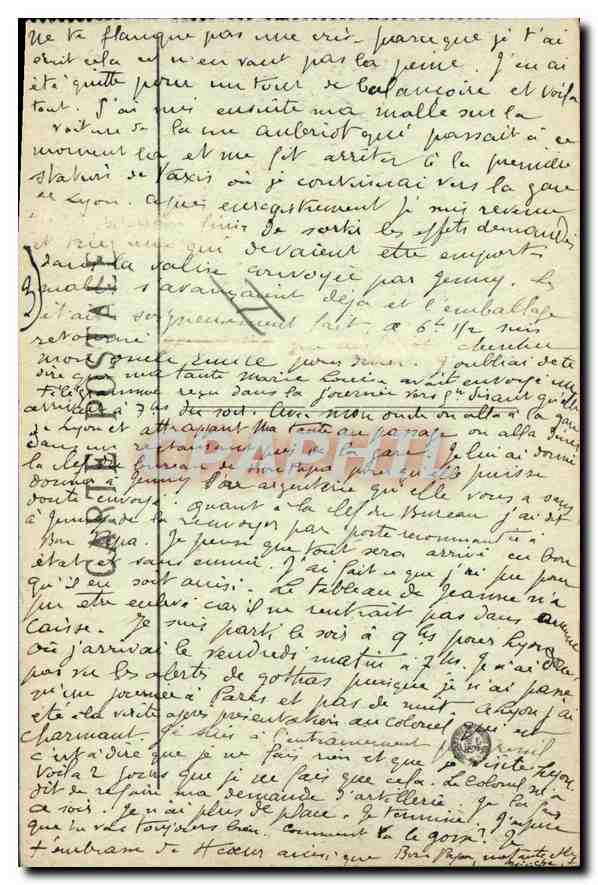 ne te flanque pas une crise parce que je t'ai
écrit cela ce n'en vaut pas la peine. J'en ai
été quitte pour un tour de balançoire et voilà
tout. J'ai mis ensuite ma malle sur la
voiture de la rue Aubriot qui passait à ce
moment là et me fit arrêter à la première
station de taxis où je continuai vers la gare
de Lyon. enregistrement je suis revenu
finir de sortir les effets demandés
et qui devaient être emportés
3) dans la valise envoyée par Jenny. La
malle s'avançait déjà et l'emballage
était soigneusement fait. à 6h 1/2 suis
retourné chercher
mon oncle Emile pour diner. J'oubliai de te
dire que ma tante Marie Louise avait envoyé un
télégramme reçu dans la journée vers disant qu'elle
arrivait à 7hs du soir. Avec mon oncle on alla à la gare
de Lyon et attrapant ma tante au passage on alla diner
dans un restaurant près de la gare. Je lui ai donné
la clef du bureau de Bon Papa pour qu'elle puisse
donner à Jenny l'argenterie qu'elle vous a sans
doute envoyé. Quant à la clef du Bureau j'ai dit
à Jenny de la renvoyer par poste recommandée à
Bon Papa. Je pense que tout sera arrivé en bon
état et sans ennui. J'ai fait ce que j'ai pu pour
qu'il en soit ainsi. Le tableau de Jeanne n'a
pu être enlevé car il ne rentrait pas dans aucune
caisse. Je suis parti le soir à 9hs pour Lyon
où j'arrivai le vendredi matin à 7hs. Je n'ai donc
pas vu les alertes de gothas puisque je n'ai passé
qu'une journée à Paris et pas de nuit. A Lyon j'ai
été à la visite après présentation au colonel qui est
charmant. Je suis à l'entrainement
c'est à dire que je ne fais rien et que je visite Lyon.
Voilà 2 jours que je ne fais que cela. Le Colonel m'a
dit de refaire ma demande d'artillerie. Je la fais
ce soir. Je n'ai plus de place. Je termine. J'espère
que tu vas toujours bien. Comment va le gosse? Je
t'embrasse de tt coeur ainsi que Bon Papa, ma tante
CARTE POSTALE